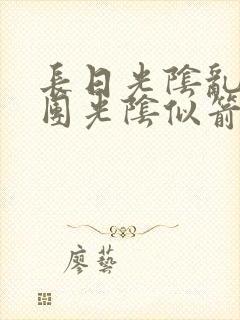 長日光陰亂
團光陰似箭
廖藝